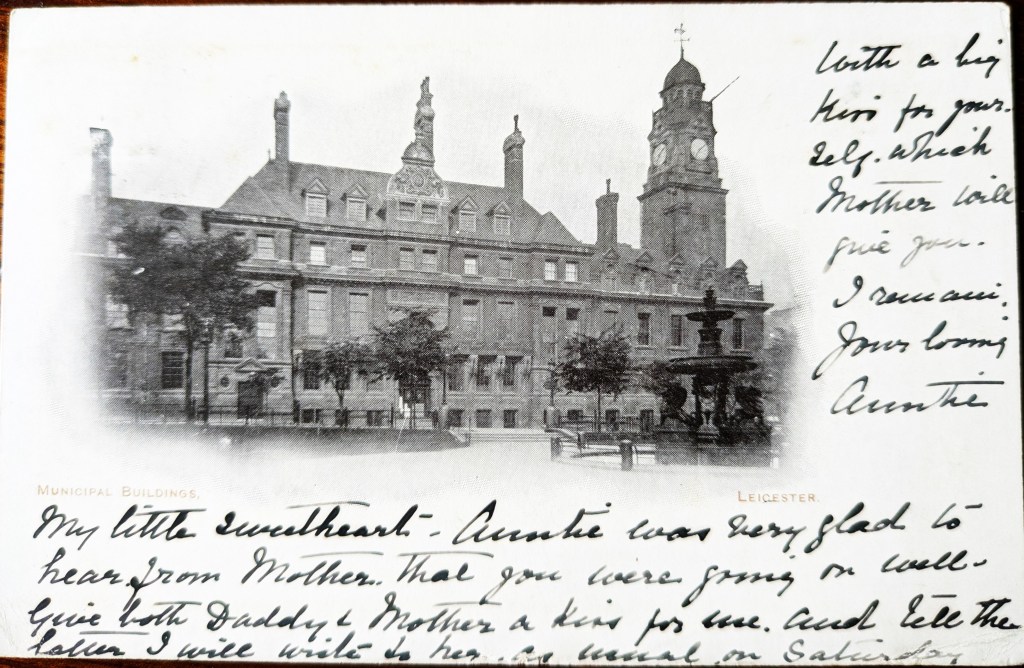 MUNICIPAL BUILDINGS.
LEICESTER.
My little sweetheart - Auntie was very glad to
hear from Mother. that you were going on well.
Give both Daddy & Mother a Kiss for me. and tell the
latter I will write to her. as usual on Saturday
With a big
Kiss for your-
self. which
Mother will
give you.
I remain.
Your loving
Auntie